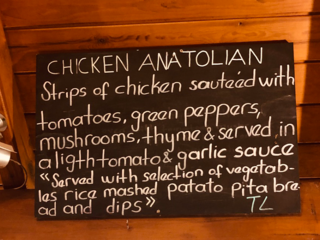 CHICKEN ANATOLIAN
Strips of chicken sauteéd with
tomatoes, green peppers,
mushrooms, thyme & served in
a ligth tomato & garlic sauce
«Served with selection of vegetab-
les rice mashed patato pita bre-
ad and dips».
TL